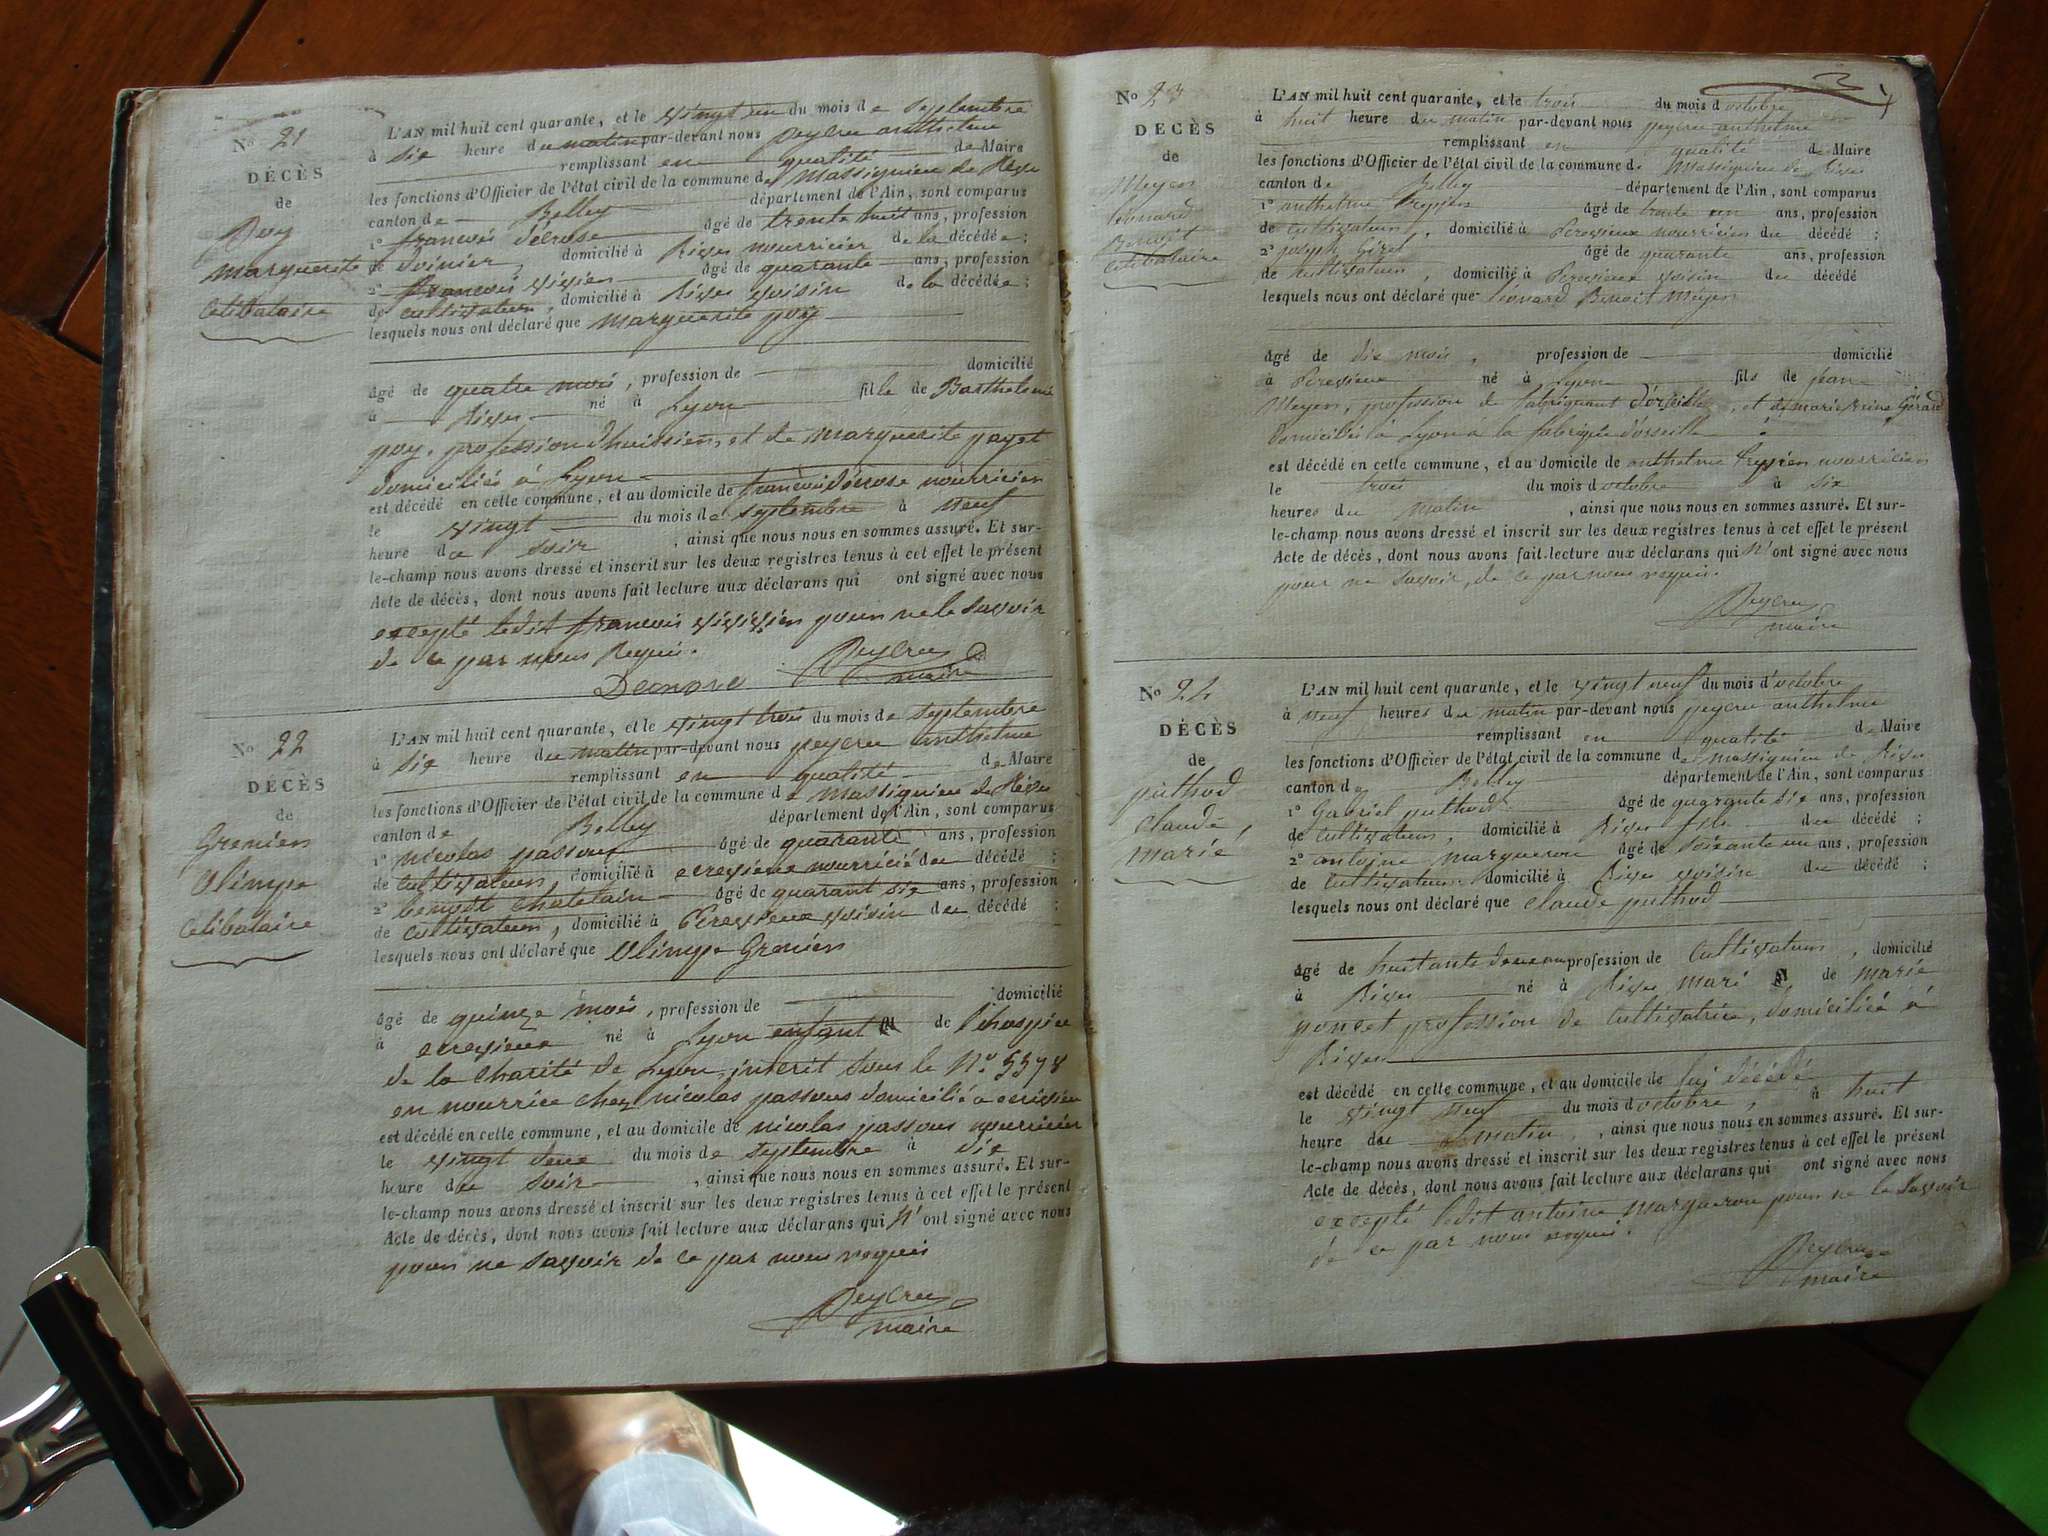 No 21
DÉCÈS
de
Poy
marguerite
celibataire
L'AN mil huit cent quarante, et le vingt un du mois de septembre
à six heure du matin par-devant nous peycru anthelme
remplissant en qualité de Maire
les fonctions d'Officier de l'état civil de la commune de Massignieu de Rives
canton de Belley département de l'Ain, sont comparus
1° francois agé de trente huit ans, profession
de domicilié à Rives nourricier de la décédée;
2° francois vivien âgé de quarante ans, profession
de cultivateur, domicilié à Rives voisin de la décédée;
lesquels nous ont déclaré que marguerite poy
âgé de quatre mois, profession de domicilié
à Rives né à Lyon fille de Barthelemi
poy, profession d'huissier, et de marguerite payet
domiciliés à Lyon
est décédé en cette commune, et au domicile de francois nourricier
le vingt du mois de septembre à neuf
heure du soir, ainsi que nous nous en sommes assuré. Et sur-
le-champ nous avons dressé et inscrit sur les deux registres tenus à cet effet le présent
Acte de décès, dont nous avons fait lecture aux déclarans qui ont signé avec nous
excepté ledit francois vivien pour ne le savoir
de ce par nous Requis.
Peycru
maire
No 22
DÉCÈS
de
Grenier
Olimpe
celibataire
L'AN mil huit cent quarante, et le vingt trois du mois de septembre
à six heure du matin par-devant nous peycru anthelme
remplissant en qualité de Maire
les fonctions d'Officier de l'état civil de la commune de Massignieu de Rives
canton de Belley département de l'Ain, sont comparus
1° nicolas passour âgé de quarante ans, profession
de cultivateur domicilié à ecrevieux nourricié du décédé;
2° benoit chatelain âgé de quarant six ans, profession
de cultivateur, domicilié à Ecrevieux voisin du décédé:
lesquels nous ont déclaré que Olimpe Grenier
âgé de quinze mois, profession de domicilié
à ecrevieux né à Lyon enfant de l'hospice
de la charité de Lyon, inscrit sous le No 5578
en nourrice chez nicolas passour domicilié a ecrivieu
est décédé en cette commune, et au domicile de nicolas passour nourricier
le vingt deux du mois de septembre à dix
heure du soir, ainsi que nous nous en sommes assuré. Et sur-
le-champ nous avons dressé et inscrit sur les deux registres tenus à cet effet le présent
Acte de décès, dont nous avons fait lecture aux déclarans qui n' ont signé avec nous
pour ne savoir de ce par nous requis
Peycru
maire
No 23
DECÈS
de
Meyer
léonard
Benoit
celibataire
L'AN mil huit cent quarante, et le trois du mois d'octobre
à huit heure du matin par-devant nous peycru anthelme
remplissant en qualité de Maire
les fonctions d'Officier de l'état civil de la commune de Massignieu de Rives
canton de Belley département de l'Ain, sont comparus
1° anthelme âgé de trente un ans, profession
de cultivateur, domicilié à Ecrevieux nourricier du décédé;
2° joseph âgé de quarante ans, profession
de cultivateur, domicilié à Ecrevieux voisin du décédé
lesquels nous ont déclaré que léonard Benoit Meyer
âgé de dix mois, profession de domicilié
à Ecrevieux né à Lyon fils de jean
Meyer, profession de fabriquant d'orseille, et de marie Reine Gérard
domiciliés à Lyon à la fabrique d'orseille
est décédé en cette commune, et au domicile de anthelme nourricier
le trois du mois d'octobre à six
heures du matin, ainsi que nous nous en sommes assuré. Et sur-
le-champ nous avons dressé et inscrit sur les deux registres tenus à cet effet le présent
Acte de décès, dont nous avons fait lecture aux déclarans qui n' ont signé avec nous
pour ne savoir, de ce par nous requis.
Peycru
maire
No 24
DÉCÈS
de
puthod
claude,
marié
L'AN mil huit cent quarante, et le vingt neuf du mois d'octobre
à neuf heures du matin par-devant nous peycru anthelme
remplissant en qualité de Maire
les fonctions d'Officier de l'état civil de la commune de massignieu de Rives
canton de Belley département de l'Ain, sont comparus
1° Gabriel puthod âgé de quarante six ans, profession
de cultivateur, domicilié à Rives fils du décédé;
2° antoine marqueron âgé de soixante un ans, profession
de cultivateur domicilié à Rives voisin du décédé;
lesquels nous ont déclaré que claude puthod
âgé de huitante deux an profession de cultivateur, domicilié
à Rives né à Rives mari de marie
poncet profession de cultivatrice, domiciliée à
Rives
est décédé en cette commune, et au domicile de lui décédé
le vingt neuf du mois d'octobre, à huit
heure du matin, ainsi que nous nous en sommes assuré. Et sur-
le-champ nous avons dressé et inscrit sur les deux registres tenus à cet effet le présent
Acte de décès, dont nous avons fait lecture aux déclarans qui ont signé avec nous
excepté ledit antoine marqueron pour ne le savoir
de ce par nous requis.
Peycru
maire